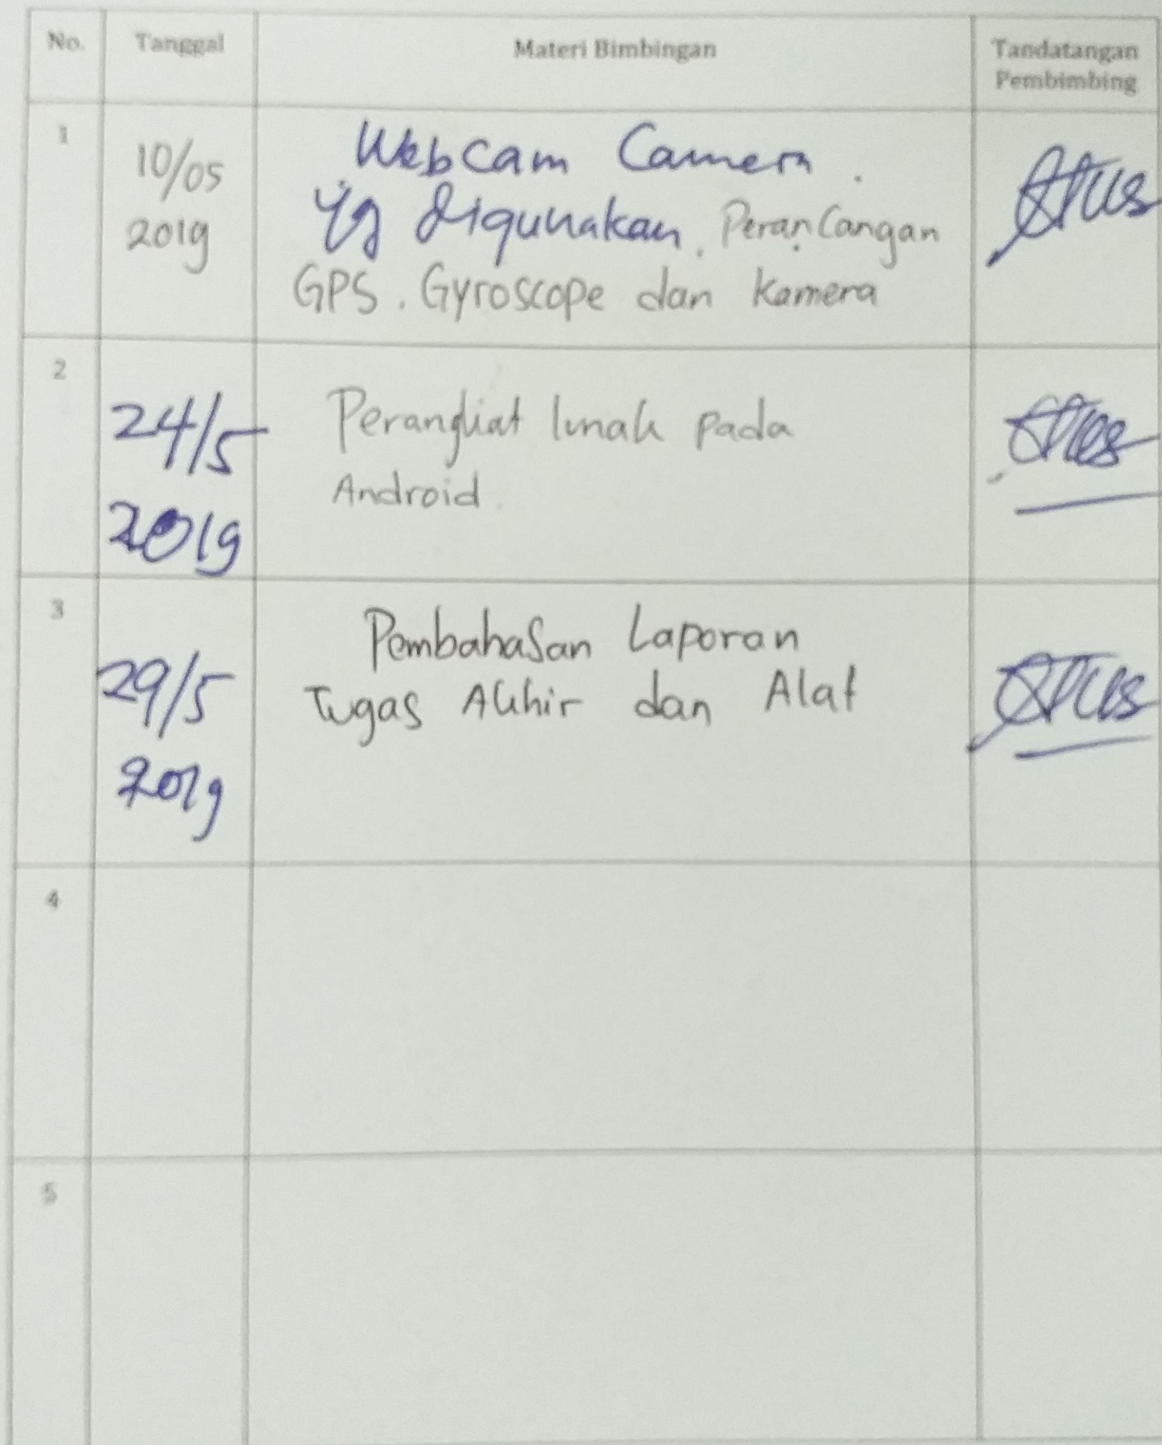 No. Tanggal Materi Bimbingan Tandatangan
Pembimbing
1 10/05 Webcam Camera.
2019 yg digunakan. Perancangan
GPS. Gyroscope dan Kamera
2 24/5 Perangkat lunak pada
2019 Android.
3 29/5 Pembahasan Laporan
2019 Tugas Akhir dan Alat
4
5